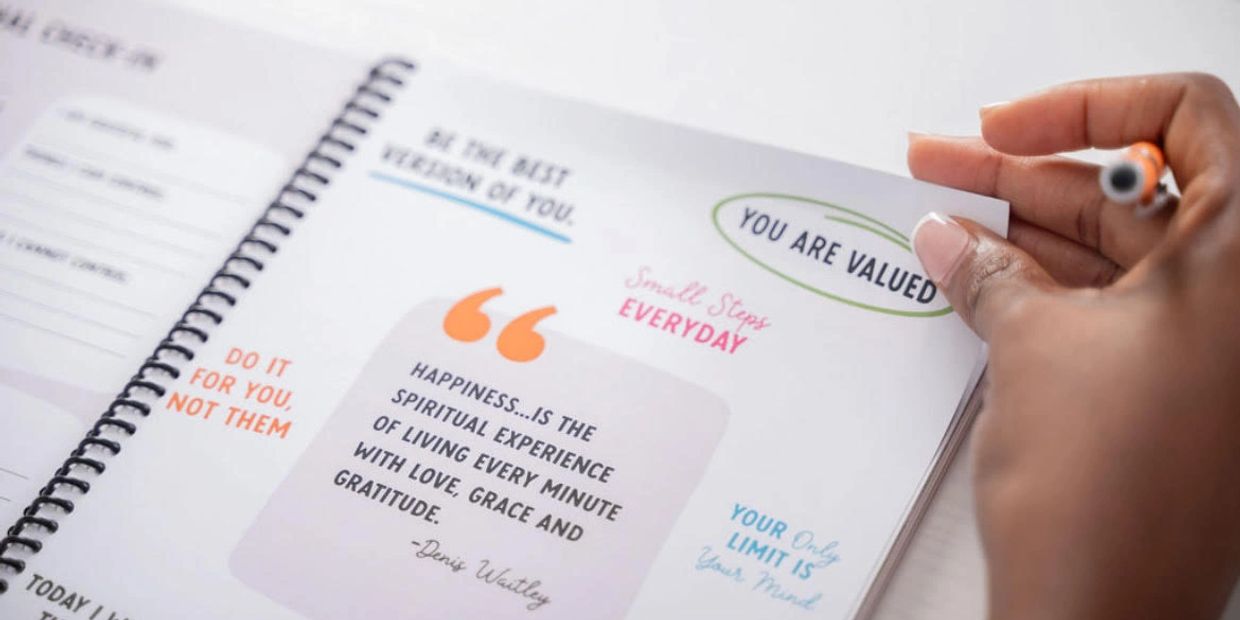 CHECK-IN
I CANNOT CONTROL
BE THE BEST
VERSION OF YOU.
YOU ARE VALUED
Small Steps
EVERYDAY
DO IT
FOR YOU,
NOT THEM
HAPPINESS...IS THE
SPIRITUAL EXPERIENCE
OF LIVING EVERY MINUTE
WITH LOVE, GRACE AND
GRATITUDE.
-Denis Waitley
YOUR Only
LIMIT IS
Your Mind
TODAY I